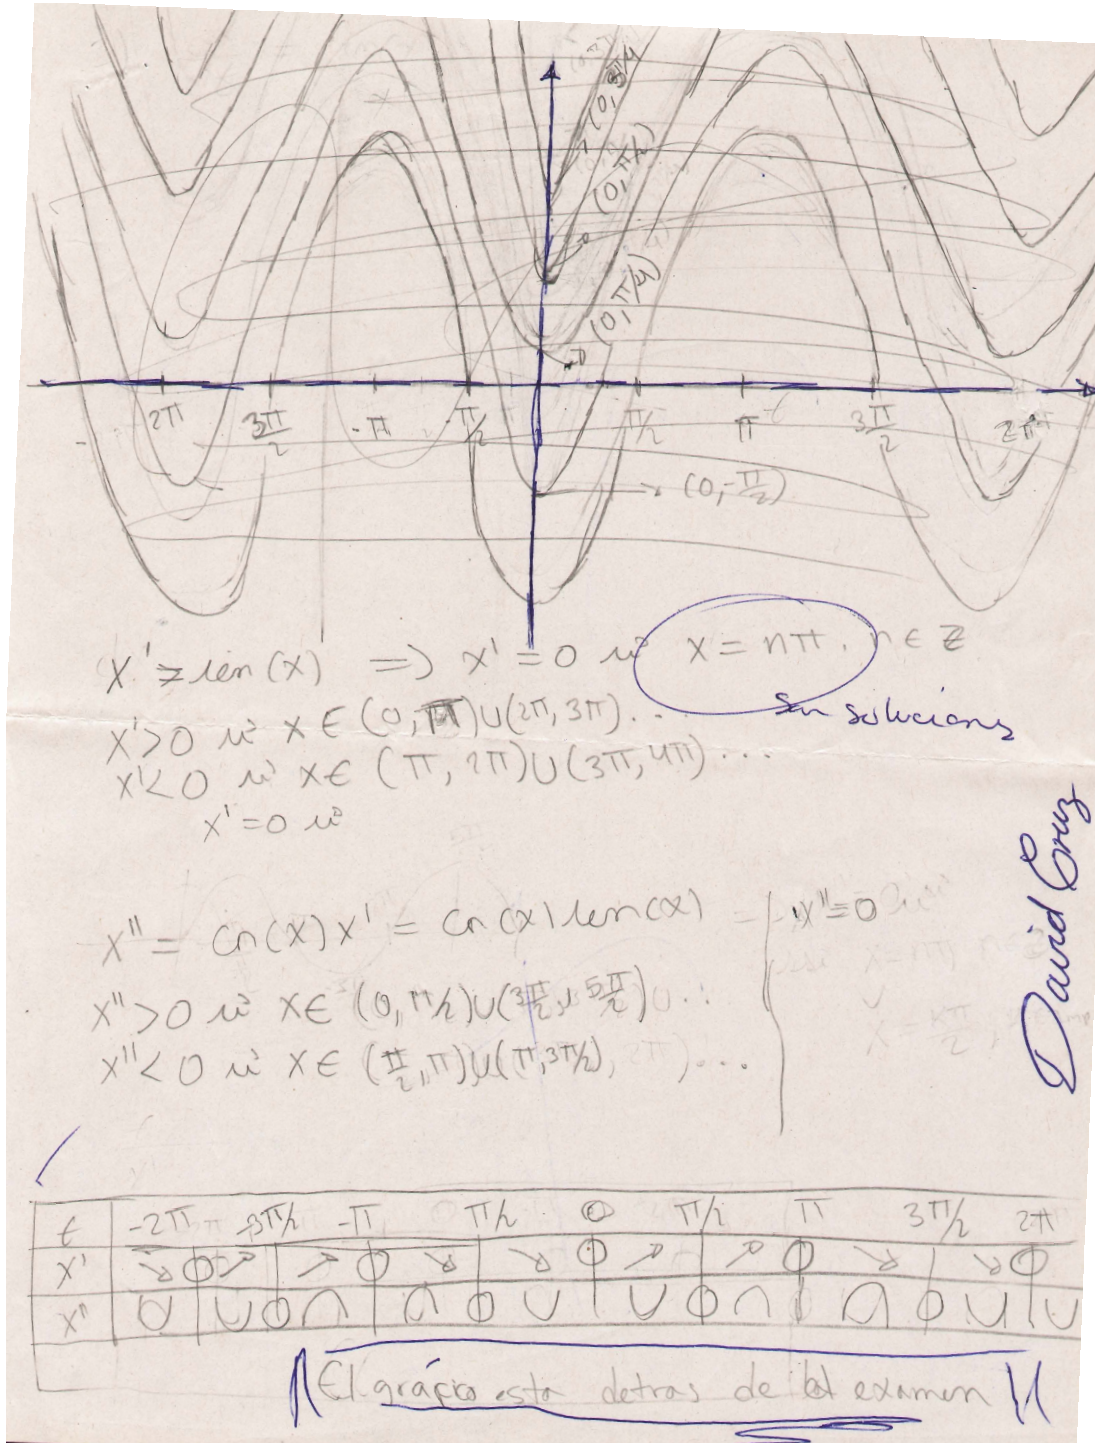 (0, 3π/4)
(0, π/2)
(0, π/4)
2π 3π/2 -π -π/2 π/2 π 3π/2 2π
(0, -π/2)
x' = sen(x) => x' = 0 si x = nπ, n ∈ Z
son soluciones
x' > 0 si x ∈ (0, π) ∪ (2π, 3π) ...
x' < 0 si x ∈ (π, 2π) ∪ (3π, 4π) ...
x' = 0 si
David Cruz
x'' = cos(x) x' = cos(x) sen(x)
x'' = 0
x'' > 0 si x ∈ (0, π/2) ∪ (3π/2, 5π/2) ∪ ...
x'' < 0 si x ∈ (π/2, π) ∪ (π, 3π/2), ...
t -2π -3π/2 -π π/2 0 π/2 π 3π/2 2π
x' ↘ 0 ↗ ↗ 0 ↘ ↘ 0 ↗ ↗ 0 ↘ ↘ 0
x'' ∩ ∪ 0 ∩ ∩ 0 ∪ ∪ 0 ∩ ∩ 0 ∪ ∪
El gráfico esta detras de el examen